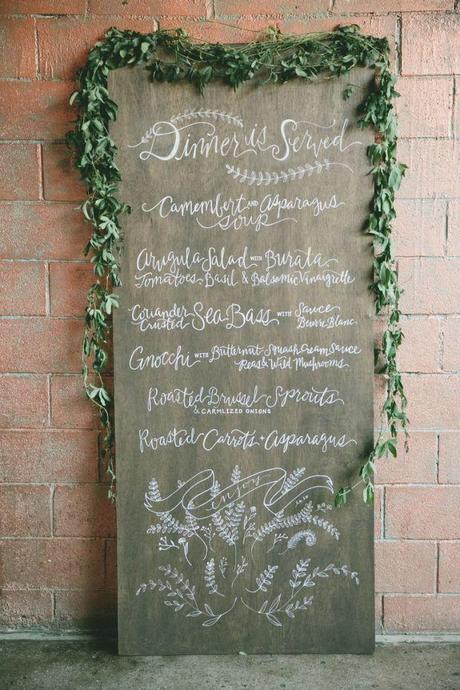 Dinner is Served
Camembert AND Asparagus
Soup
Arugula Salad WITH Burata
Tomatoes Basil & Balsamic Vinaigrette
Coriander Sea Bass WITH Sauce
Crusted Beurre Blanc
Gnocchi WITH Butternut Squash Cream Sauce
Peas & Wild Mushrooms
Roasted Brussel Sprouts
& CARMLIZED ONIONS
Roasted Carrots + Asparagus
enjoy